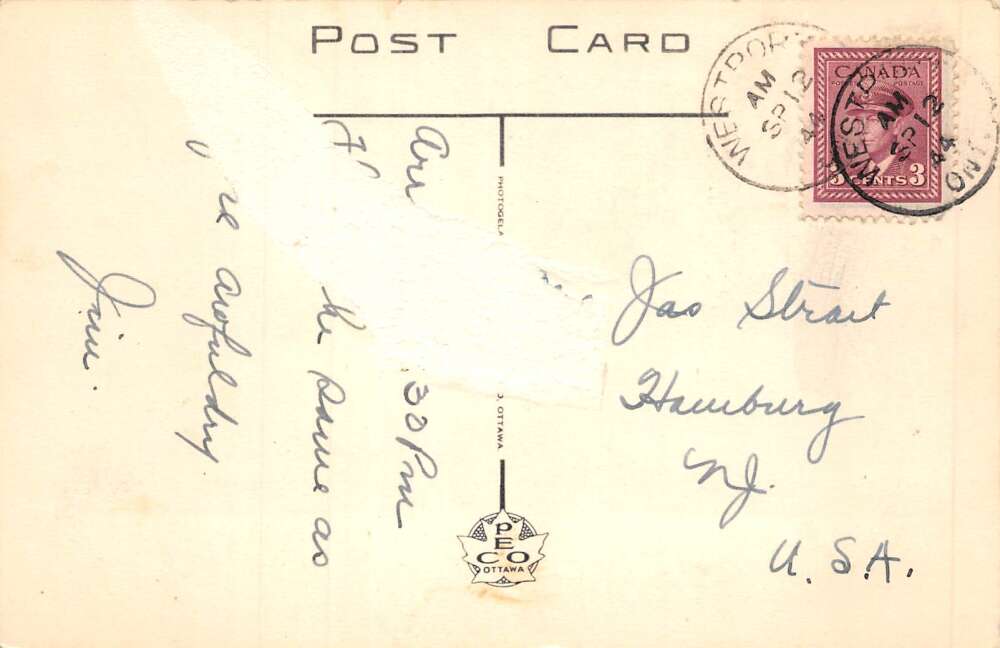 POST CARD
WESTPORT
AM
SP 12
44
CANADA
POSTES POSTAGE
3 CENTS 3
WESTPO
AM
SP 12
44
ONT
Arr
30 Pm
the same as
re awful dry
Jim.
PHOTOGELA
O. OTTAWA
PECO
OTTAWA
Jas Strait
Hamburg
NJ.
U. S. A.